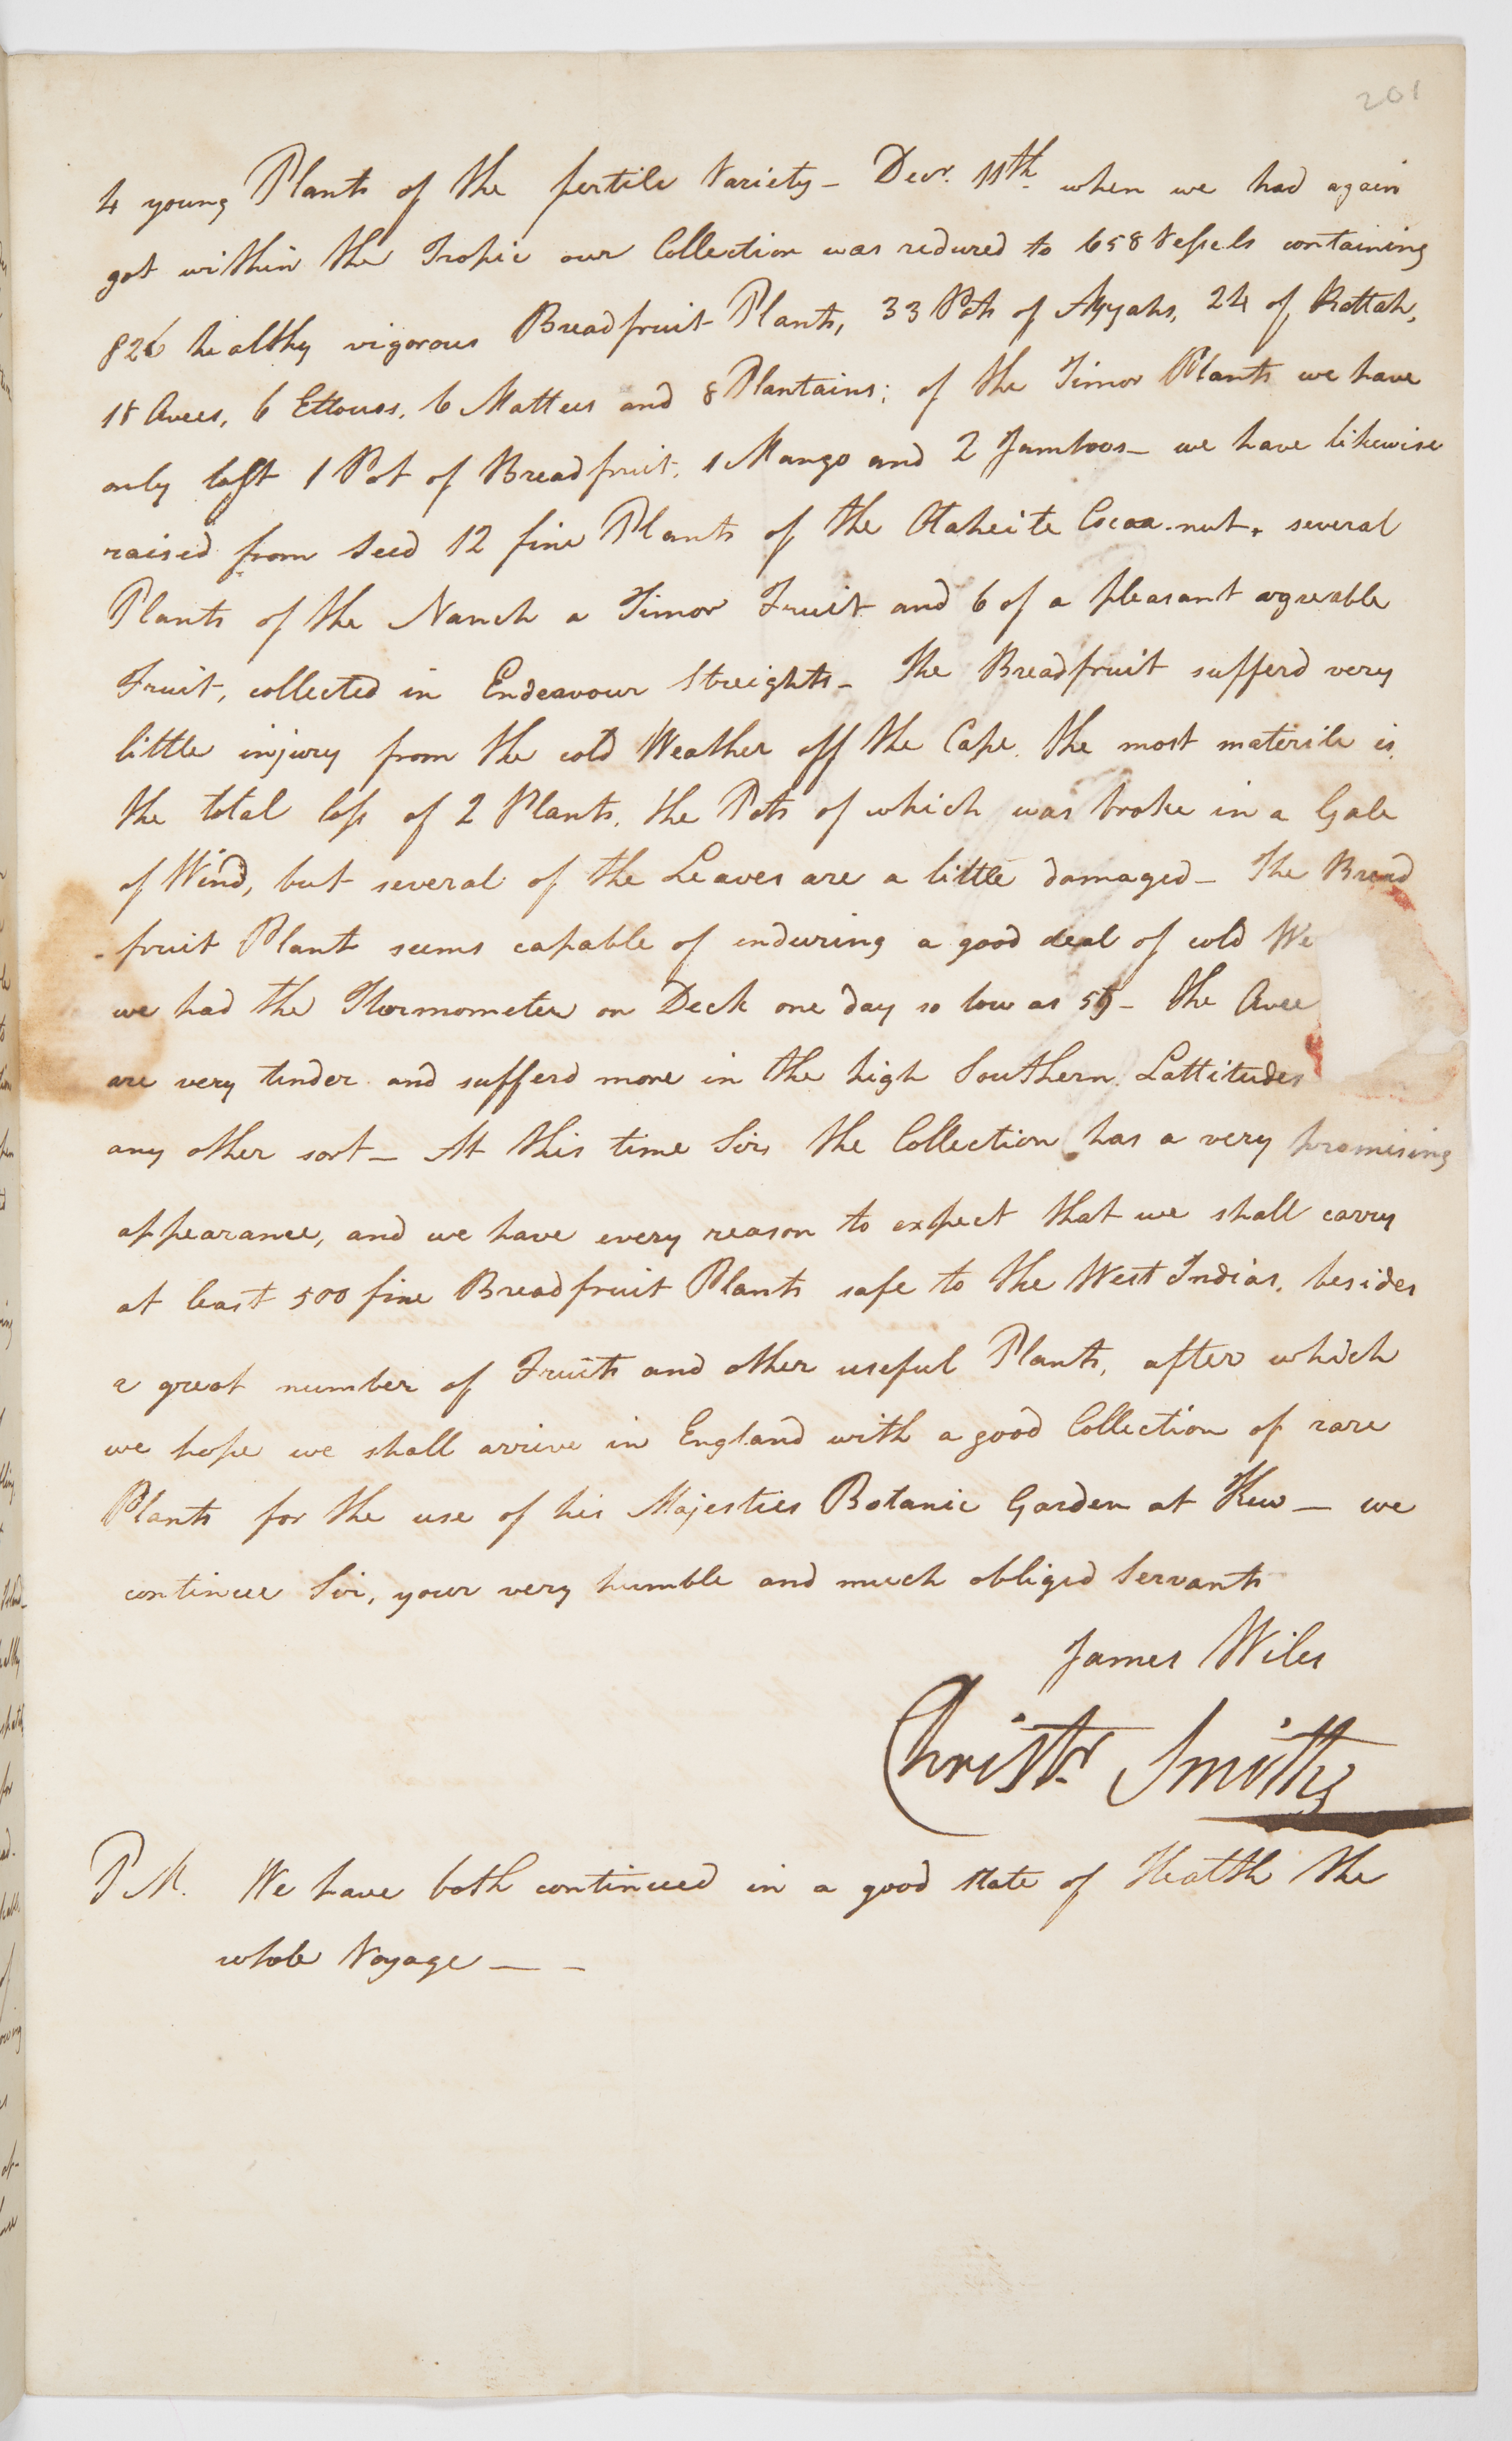 201
4 young Plants of the fertile Variety - Decr. 11th when we had again
got within the Tropic our Collection was reduced to 658 Vessels containing
826 healthy vigorous Breadfruit Plants, 33 Pots of Ayyahs, 24 of Rattah,
18 Avees, 6 Ettouos, 6 Mattees and 8 Plantains; of the Timor Plants we have
only left 1 Pot of Breadfruit, 1 Mango and 2 Jamboos - we have likewise
raised from Seed 12 fine Plants of the Otaheite Cocoa-nut, several
Plants of the Nanch a Timor Fruit and 6 of a pleasant agreable
Fruit, collected in Endeavour Streights - The Breadfruit sufferd very
little injury from the cold Weather off the Cape. the most materile is
the total loss of 2 Plants, the Pots of which was broke in a Gale
of Wind, but several of the Leaves are a little damaged - The Bread
-fruit Plant seems capable of enduring a good deal of cold We
we had the Thermometer on Deck one day so low as - the Avee
are very tender and sufferd more in the high Southern Lattitudes
any other sort - At this time Sir, the Collection has a very promising
appearance, and we have every reason to expect that we shall carry
at least 500 fine Breadfruit Plants safe to the West Indias, besides
a great number of Fruits and other useful Plants, after which
we hope we shall arrive in England with a good Collection of rare
Plants for the use of his Majesties Botanic Garden at Kew - we
continue Sir, your very humble and much obliged Servants
James Wiles
Christr. Smith
P M. We have both continued in a good state of Health the
whole Voyage - -